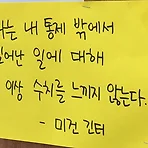 나는 내 통제 밖에서
일어난 일에 대해
이상 수치를 느끼지 않는다.
- 미건 긴터